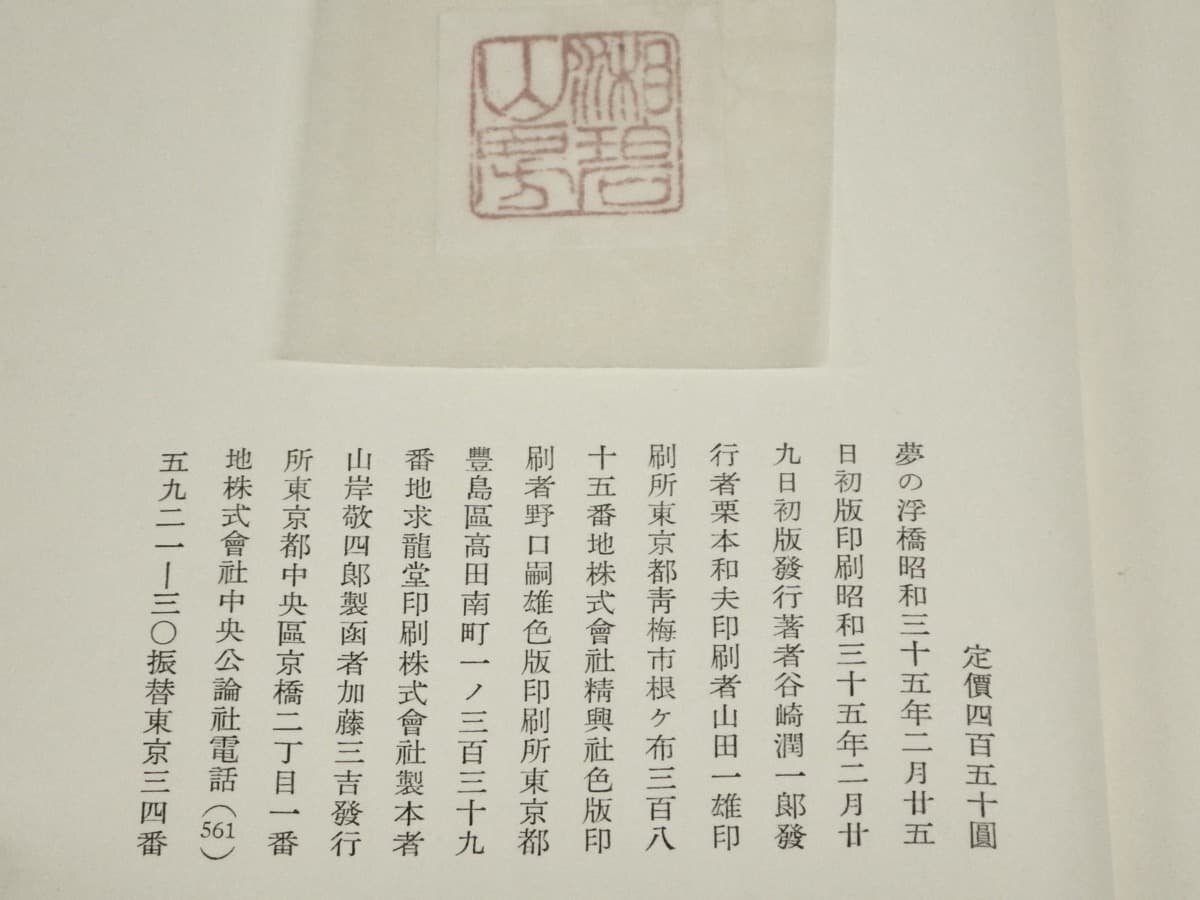 湘碧
山房
定價四百五十圓
夢の浮橋昭和三十五年二月廿五
日初版印刷昭和三十五年二月廿
九日初版發行著者谷崎潤一郎發
行者栗本和夫印刷者山田一雄印
刷所東京都靑梅市根ヶ布三百八
十五番地株式會社精興社色版印
刷者野口嗣雄色版印刷所東京都
豐島區高田南町一ノ三百三十九
番地求龍堂印刷株式會社製本者
山岸敬四郞製函者加藤三吉發行
所東京都中央區京橋二丁目一番
地株式會社中央公論社電話(561)
五九二一―三〇振替東京三四番